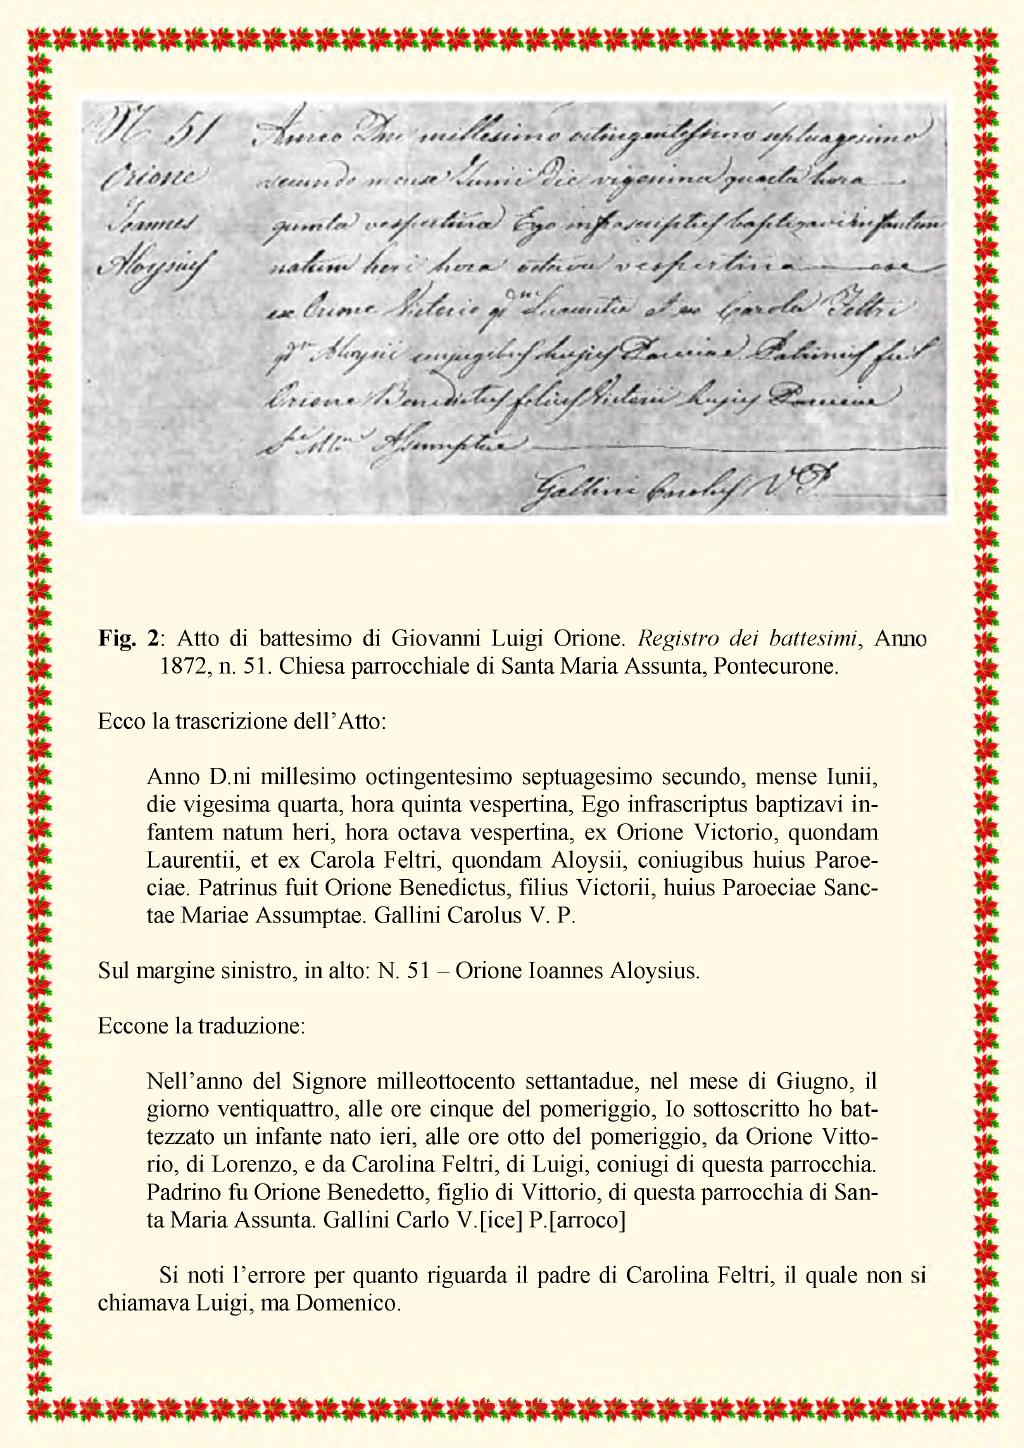 N. 51
Orione
Joannes
Aloysius
Anno Dni millesimo octingentesimo septuagesimo
secundo mense Iunii Die vigesima quarta hora
quinta vespertina Ego infrascriptus baptizavi infantem
natum heri hora octava vespertina
ex Orione Victorio qm Laurentio et ex Carola Feltri
qm Aloysii conjugibus hujus Paroeciae Patrinus fuit
Orione Benedictus filius Victorii hujus Paroeciae
Assumptae
Gallini Carolus V. P.
Fig. 2: Atto di battesimo di Giovanni Luigi Orione. Registro dei battesimi, Anno
1872, n. 51. Chiesa parrocchiale di Santa Maria Assunta, Pontecurone.
Ecco la trascrizione dell’Atto:
Anno D.ni millesimo octingentesimo septuagesimo secundo, mense Iunii,
die vigesima quarta, hora quinta vespertina, Ego infrascriptus baptizavi in-
fantem natum heri, hora octava vespertina, ex Orione Victorio, quondam
Laurentii, et ex Carola Feltri, quondam Aloysii, coniugibus huius Paroe-
ciae. Patrinus fuit Orione Benedictus, filius Victorii, huius Paroeciae Sanc-
tae Mariae Assumptae. Gallini Carolus V. P.
Sul margine sinistro, in alto: N. 51 – Orione Ioannes Aloysius.
Eccone la traduzione:
Nell’anno del Signore milleottocento settantadue, nel mese di Giugno, il
giorno ventiquattro, alle ore cinque del pomeriggio, Io sottoscritto ho bat-
tezzato un infante nato ieri, alle ore otto del pomeriggio, da Orione Vitto-
rio, di Lorenzo, e da Carolina Feltri, di Luigi, coniugi di questa parrocchia.
Padrino fu Orione Benedetto, figlio di Vittorio, di questa parrocchia di San-
ta Maria Assunta. Gallini Carlo V.[ice] P.[arroco]
Si noti l’errore per quanto riguarda il padre di Carolina Feltri, il quale non si
chiamava Luigi, ma Domenico.